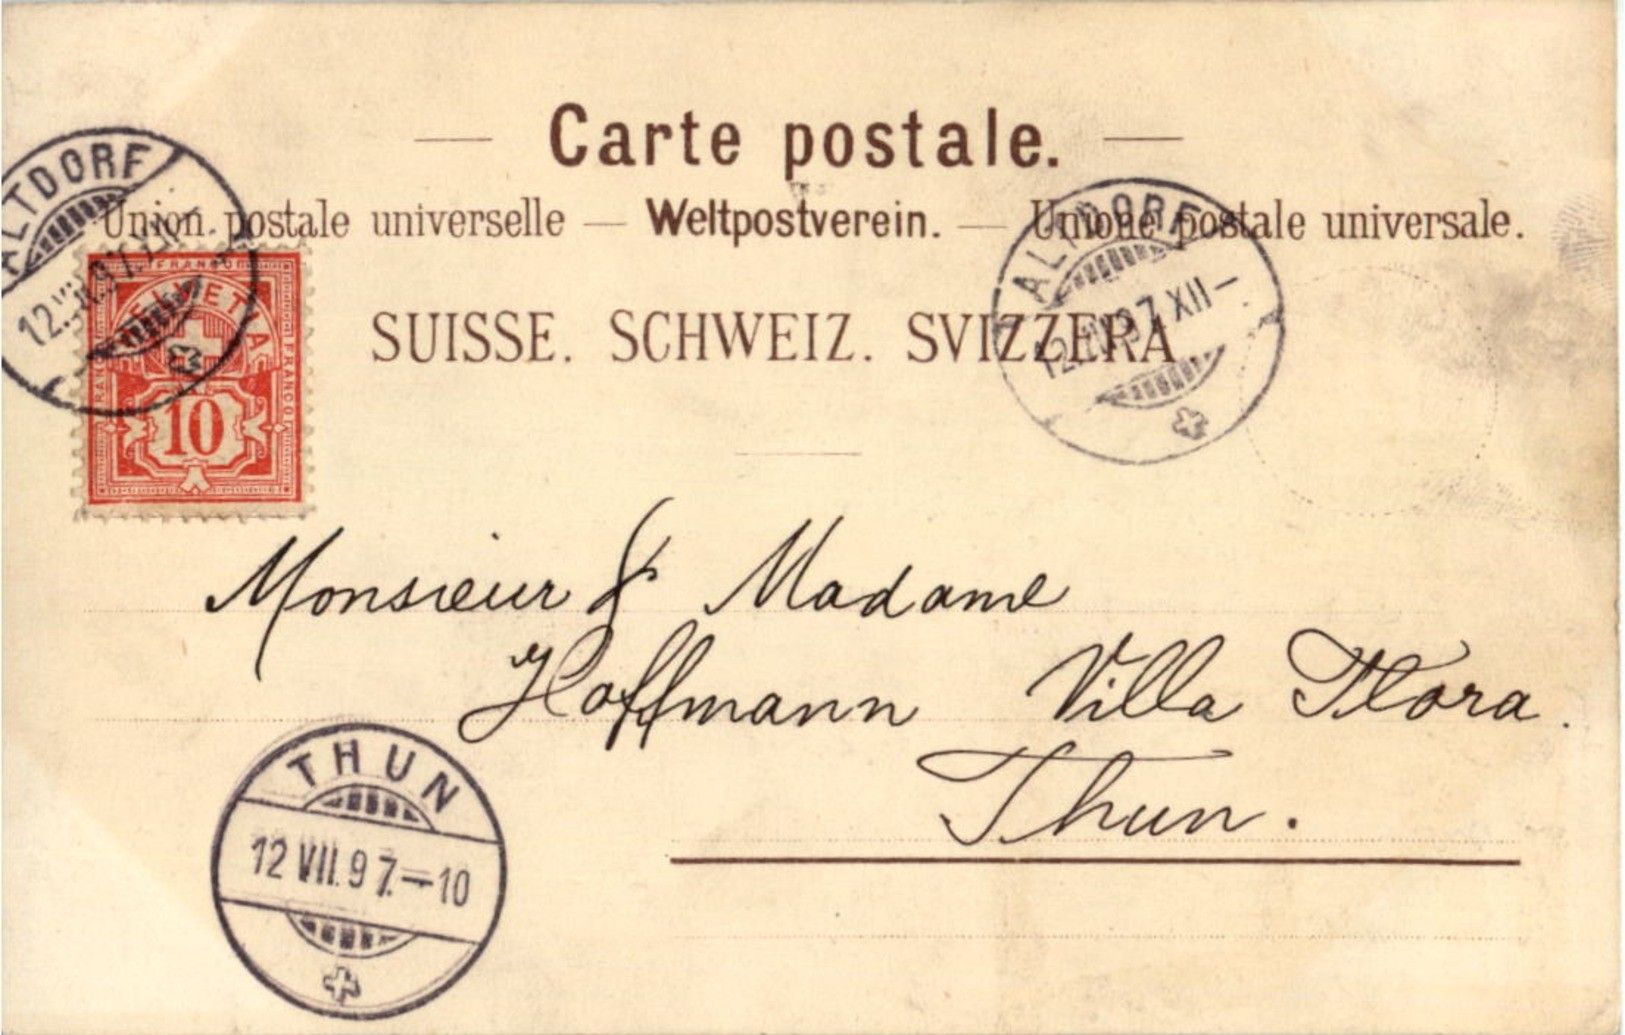 — Carte postale. —
Union postale universelle — Weltpostverein. — Unione postale universale.
SUISSE. SCHWEIZ. SVIZZERA
ALTDORF
12.VII.97.XII–
FRANCO
HELVETIA
FRANCO
FRANCO
10
ALTDORF
12.VII.97 XII–
Monsieur & Madame
Hoffmann Villa Flora.
Thun.
THUN
12 VII.97.–10